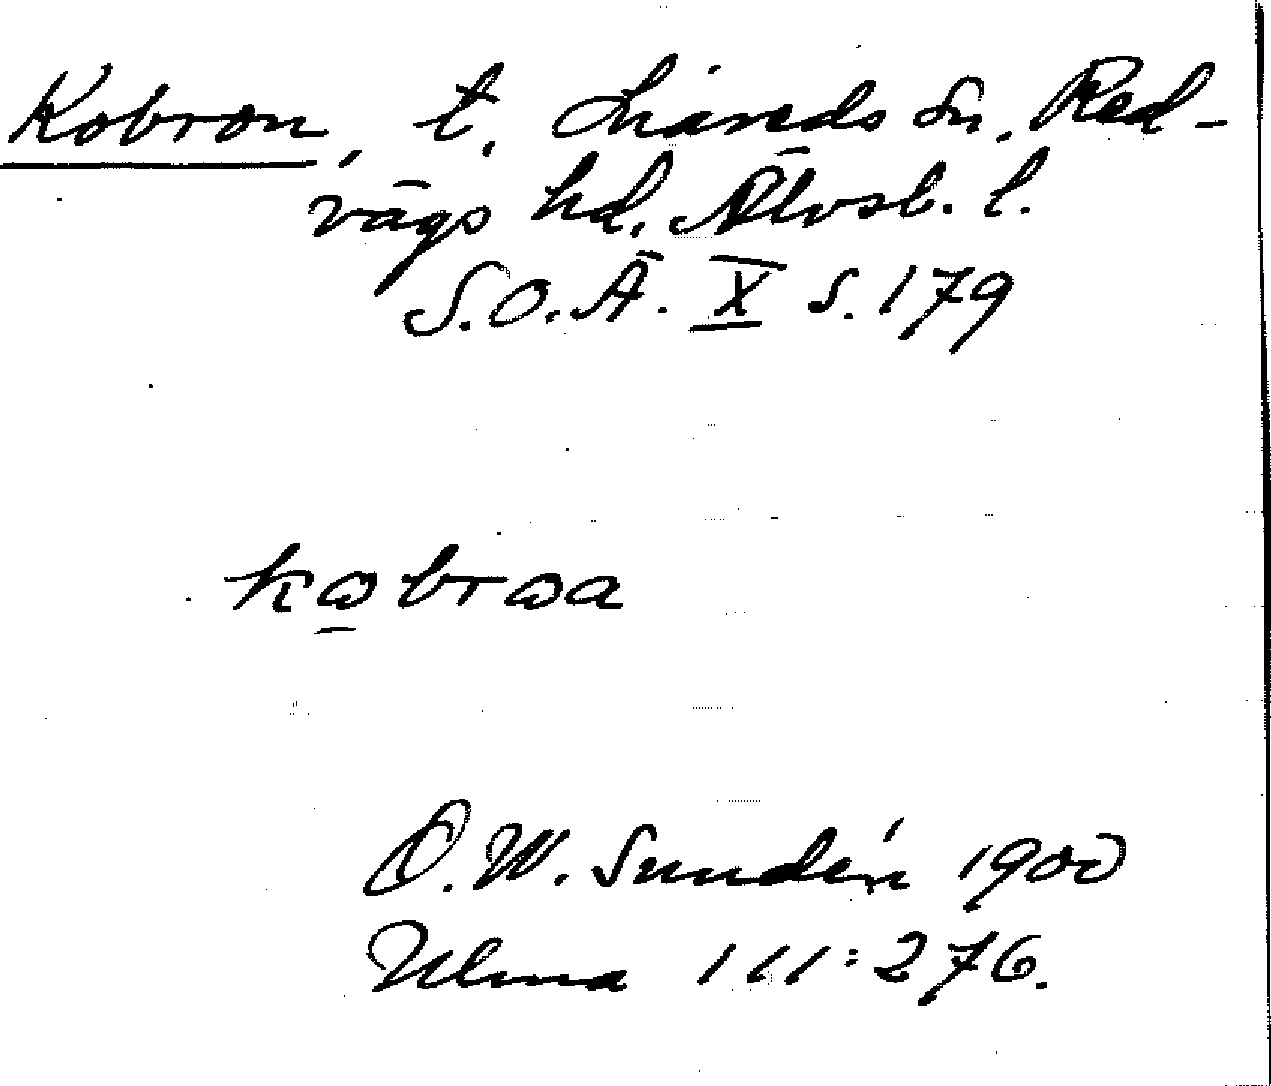 Kobron, t. Liareds sn. Red-
vägs hd. Älvsb. l.
S.O.Ä. X s. 179
kωbrωa
D. W. Sundén 1900
Ulma 111:276.